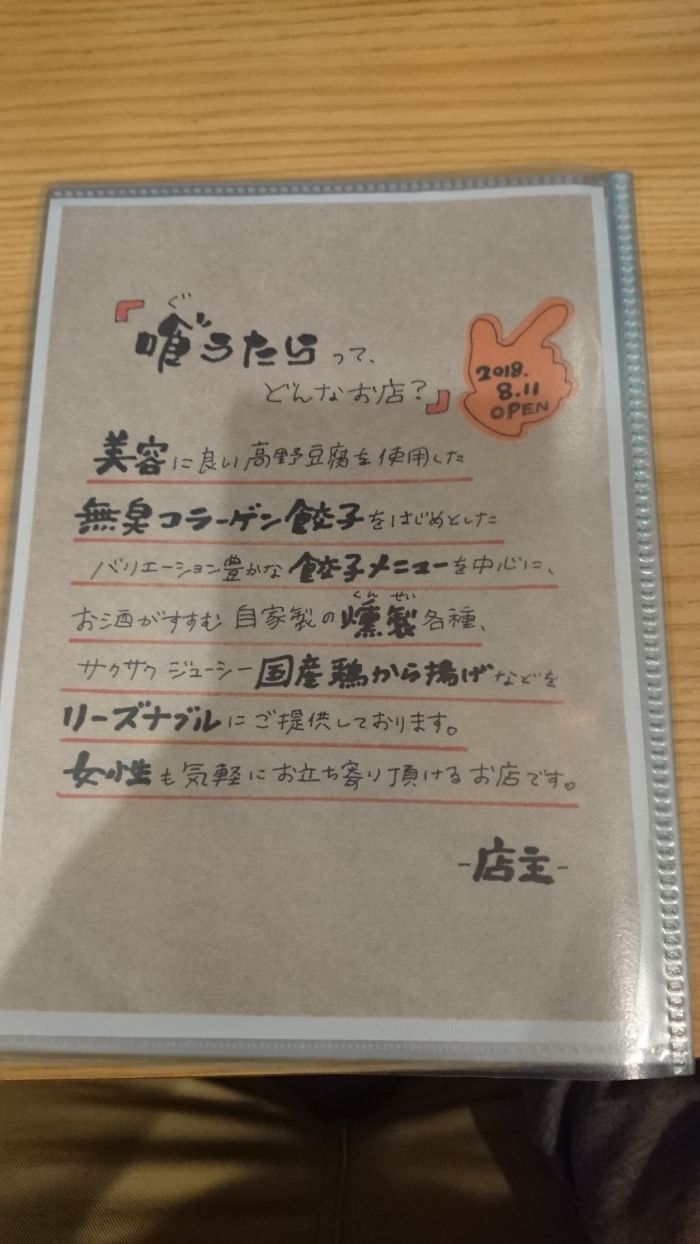 ぐ
『喰"うたらって、
どんなお店?』
2018.
8.11
OPEN
美容に良い高野豆腐を使用した
無臭コラーゲン餃子をはじめとした
バリエーション豊かな餃子メニューを中心に、
くんせい
お酒がすすむ自家製の燻製各種、
サクサクジューシー国産鶏から揚げなどを
リーズナブルにご提供しております。
女性も気軽にお立ち寄り頂けるお店です。
-店主-